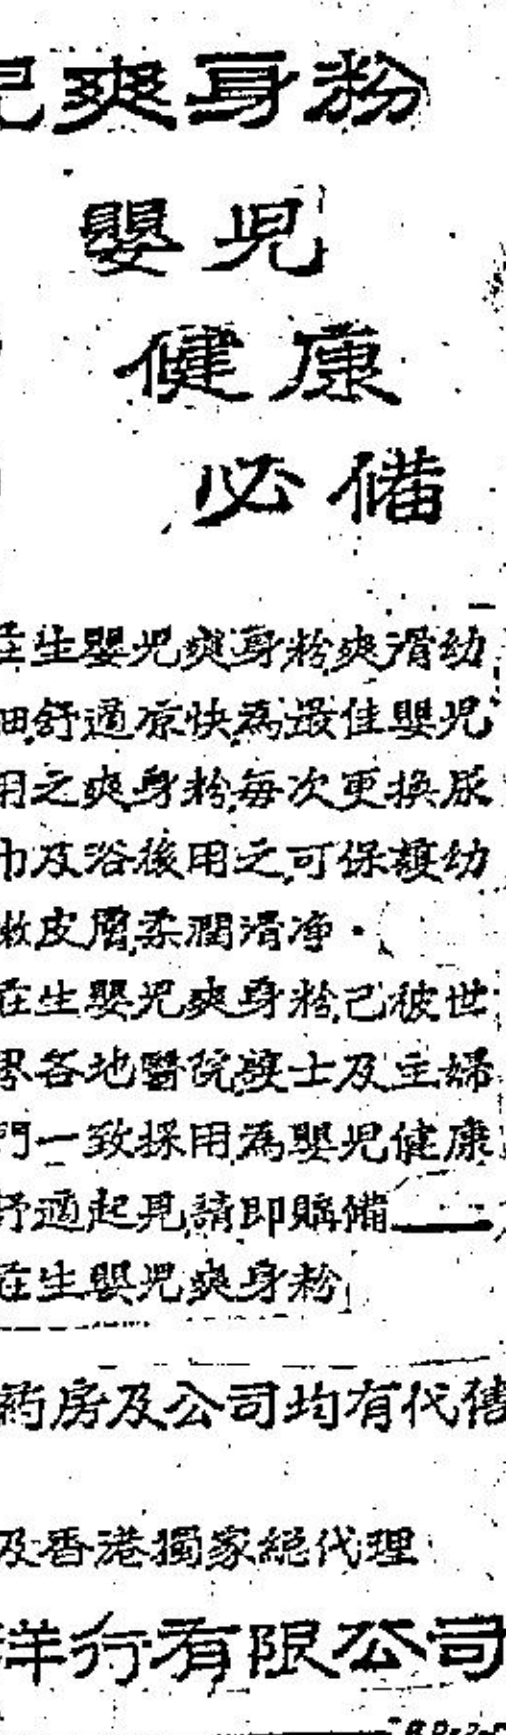 兒爽身粉
嬰兒
健康
必備
莊生嬰兒爽身粉爽滑幼
細舒適凉快為最佳嬰兒
用之爽身粉每次更換尿
巾及浴後用之可保護幼
嫩皮膚柔潤滑净·
莊生嬰兒爽身粉己被世
界各地醫院護士及主婦
們一致採用為嬰兒健康
舒適起見請即購備——
莊生嬰兒爽身粉
药房及公司均有代售
及香港獨家總代理
洋行有限公司